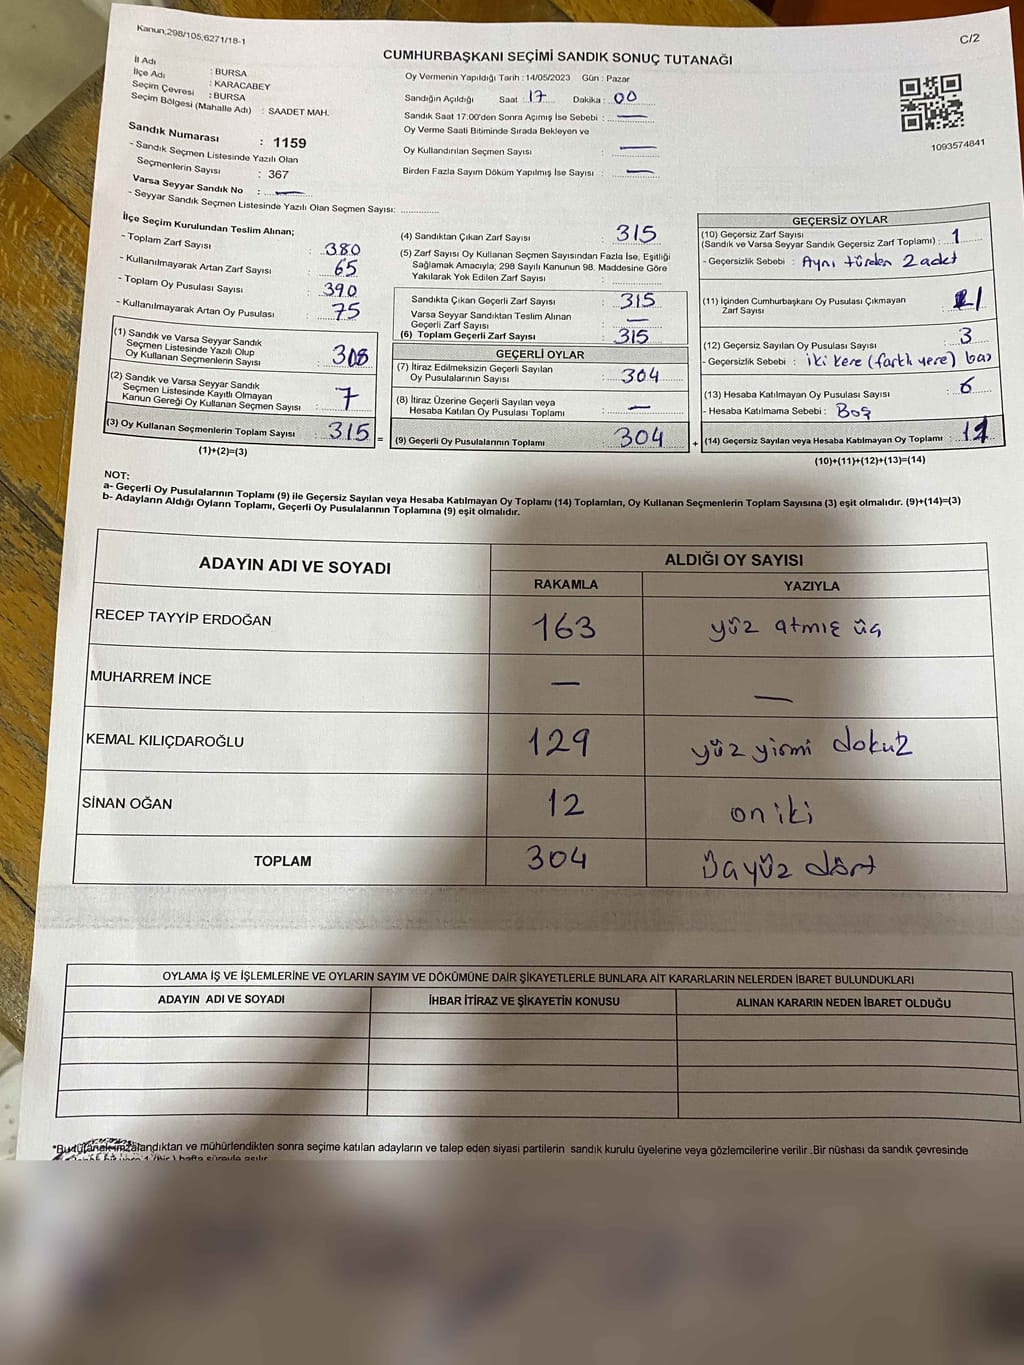 Kanun;298/105,6271/18-1
C/2
CUMHURBAŞKANI SEÇİMİ SANDIK SONUÇ TUTANAĞI
İl Adı : BURSA
İlçe Adı : KARACABEY
Seçim Çevresi : BURSA
Seçim Bölgesi (Mahalle Adı) : SAADET MAH.
Sandık Numarası : 1159
- Sandık Seçmen Listesinde Yazılı Olan
Seçmenlerin Sayısı : 367
Varsa Seyyar Sandık No : —
- Seyyar Sandık Seçmen Listesinde Yazılı Olan Seçmen Sayısı: ..............
Oy Vermenin Yapıldığı Tarih : 14/05/2023 Gün : Pazar
Sandığın Açıldığı Saat : 17 Dakika : 00
Sandık Saat 17:00'den Sonra Açımış İse Sebebi : —
Oy Verme Saati Bitiminde Sırada Bekleyen ve
Oy Kullandırılan Seçmen Sayısı : —
Birden Fazla Sayım Döküm Yapılmış İse Sayısı : —
1093574841
İlçe Seçim Kurulundan Teslim Alınan;
- Toplam Zarf Sayısı : 380
- Kullanılmayarak Artan Zarf Sayısı : 65
- Toplam Oy Pusulası Sayısı : 390
- Kullanılmayarak Artan Oy Pusulası : 75
(1) Sandık ve Varsa Seyyar Sandık
Seçmen Listesinde Yazılı Olup
Oy Kullanan Seçmenlerin Sayısı : 308
(2) Sandık ve Varsa Seyyar Sandık
Seçmen Listesinde Kayıtlı Olmayan
Kanun Gereği Oy Kullanan Seçmen Sayısı : 7
(3) Oy Kullanan Seçmenlerin Toplam Sayısı : 315 =
(1)+(2)=(3)
(4) Sandıktan Çıkan Zarf Sayısı : 315
(5) Zarf Sayısı Oy Kullanan Seçmen Sayısından Fazla İse, Eşitliği
Sağlamak Amacıyla; 298 Sayılı Kanunun 98. Maddesine Göre
Yakılarak Yok Edilen Zarf Sayısı :
Sandıkta Çıkan Geçerli Zarf Sayısı : 315
Varsa Seyyar Sandıktan Teslim Alınan
Geçerli Zarf Sayısı : —
(6) Toplam Geçerli Zarf Sayısı : 315
GEÇERLİ OYLAR
(7) İtiraz Edilmeksizin Geçerli Sayılan
Oy Pusulalarının Sayısı : 304
(8) İtiraz Üzerine Geçerli Sayılan veya
Hesaba Katılan Oy Pusulası Toplamı : —
(9) Geçerli Oy Pusulalarının Toplamı : 304 +
GEÇERSİZ OYLAR
(10) Geçersiz Zarf Sayısı
(Sandık ve Varsa Seyyar Sandık Geçersiz Zarf Toplamı) : 1
- Geçersizlik Sebebi : Aynı türden 2 adet
(11) İçinden Cumhurbaşkanı Oy Pusulası Çıkmayan
Zarf Sayısı : 1
(12) Geçersiz Sayılan Oy Pusulası Sayısı : 3
- Geçersizlik Sebebi : iki kere (farklı yere) bas
(13) Hesaba Katılmayan Oy Pusulası Sayısı : 6
- Hesaba Katılmama Sebebi : Boş
(14) Geçersiz Sayılan veya Hesaba Katılmayan Oy Toplamı : 11
(10)+(11)+(12)+(13)=(14)
NOT:
a- Geçerli Oy Pusulalarının Toplamı (9) ile Geçersiz Sayılan veya Hesaba Katılmayan Oy Toplamı (14) Toplamları, Oy Kullanan Seçmenlerin Toplam Sayısına (3) eşit olmalıdır. (9)+(14)=(3)
b- Adayların Aldığı Oyların Toplamı, Geçerli Oy Pusulalarının Toplamına (9) eşit olmalıdır.
ADAYIN ADI VE SOYADI ALDIĞI OY SAYISI
RAKAMLA YAZIYLA
RECEP TAYYİP ERDOĞAN 163 yüz atmış üç
MUHARREM İNCE — —
KEMAL KILIÇDAROĞLU 129 yüz yirmi dokuz
SİNAN OĞAN 12 on iki
TOPLAM 304 Üçyüz dört
OYLAMA İŞ VE İŞLEMLERİNE VE OYLARIN SAYIM VE DÖKÜMÜNE DAİR ŞİKAYETLERLE BUNLARA AİT KARARLARIN NELERDEN İBARET BULUNDUKLARI
ADAYIN ADI VE SOYADI İHBAR İTİRAZ VE ŞİKAYETİN KONUSU ALINAN KARARIN NEDEN İBARET OLDUĞU
*Bu tutanak imzalandıktan ve mühürlendikten sonra seçime katılan adayların ve talep eden siyasi partilerin sandık kurulu üyelerine veya gözlemcilerine verilir .Bir nüshası da sandık çevresinde